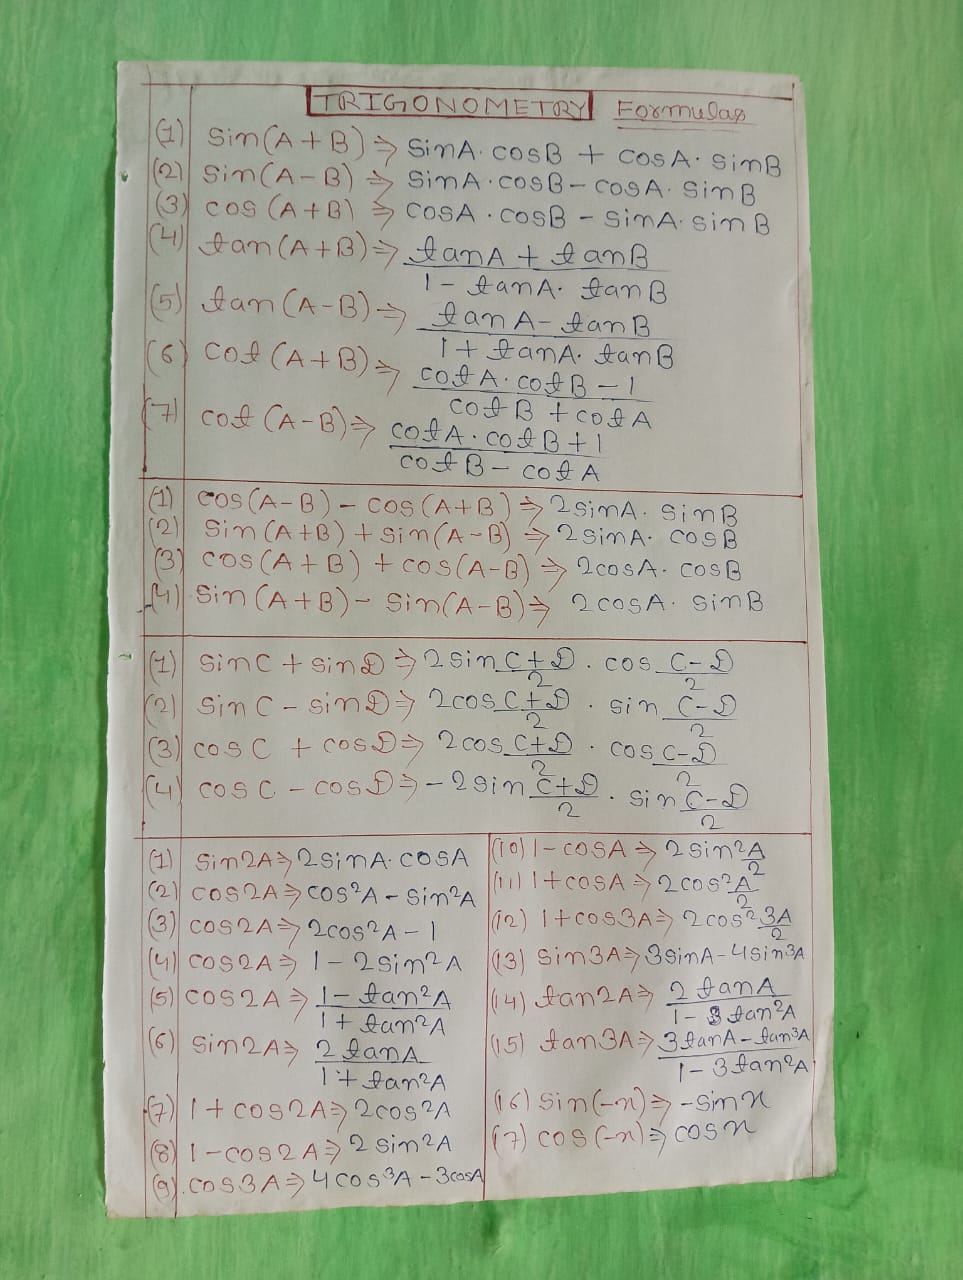 TRIGONOMETRY Formulas
(1) Sin(A+B) ⇒ SinA. cosB + cosA. sinB
(2) Sin(A-B) ⇒ SinA.cosB - cosA. SinB
(3) cos (A+B) ⇒ cosA . cosB - sinA. sin B
(4) tan (A+B) ⇒ (tanA + tanB)/(1 - tanA. tanB)
(5) tan (A-B) ⇒ (tan A - tan B)/(1 + tanA. tanB)
(6) Cot (A+B) ⇒ (cotA.cotB - 1)/(cotB + cotA)
(7) cot (A-B) ⇒ (cotA.cotB + 1)/(cotB - cotA)
(1) cos(A-B) - cos(A+B) ⇒ 2sinA. SinB
(2) Sin (A+B) + Sin(A-B) ⇒ 2sinA. cosB
(3) cos(A+B) + cos(A-B) ⇒ 2cosA. cosB
(4) Sin (A+B) - Sin(A-B) ⇒ 2cosA. SinB
(1) SinC + sinD ⇒ 2sin (C+D)/2 . cos (C-D)/2
(2) SinC - sinD ⇒ 2cos (C+D)/2 . sin (C-D)/2
(3) cosC + cosD ⇒ 2cos (C+D)/2 . cos (C-D)/2
(4) cosC - cosD ⇒ -2sin (C+D)/2 . Sin (C-D)/2
(1) Sin2A ⇒ 2sinA.cosA
(2) cos2A ⇒ cos²A - Sin²A
(3) cos2A ⇒ 2cos²A - 1
(4) cos2A ⇒ 1 - 2sin²A
(5) cos2A ⇒ (1 - tan²A)/(1 + tan²A)
(6) Sin2A ⇒ (2 tanA)/(1 + tan²A)
(7) 1 + cos2A ⇒ 2cos²A
(8) 1 - cos2A ⇒ 2 sin²A
(9) cos3A ⇒ 4cos³A - 3cosA
(10) 1 - cosA ⇒ 2sin² A/2
(11) 1 + cosA ⇒ 2cos² A/2
(12) 1 + cos3A ⇒ 2cos² 3A/2
(13) Sin3A ⇒ 3SinA - 4Sin³A
(14) tan2A ⇒ (2 tanA)/(1 - tan²A)
(15) tan3A ⇒ (3tanA - tan³A)/(1 - 3tan²A)
(16) Sin(-x) ⇒ -Sinx
(17) cos(-x) ⇒ cosx